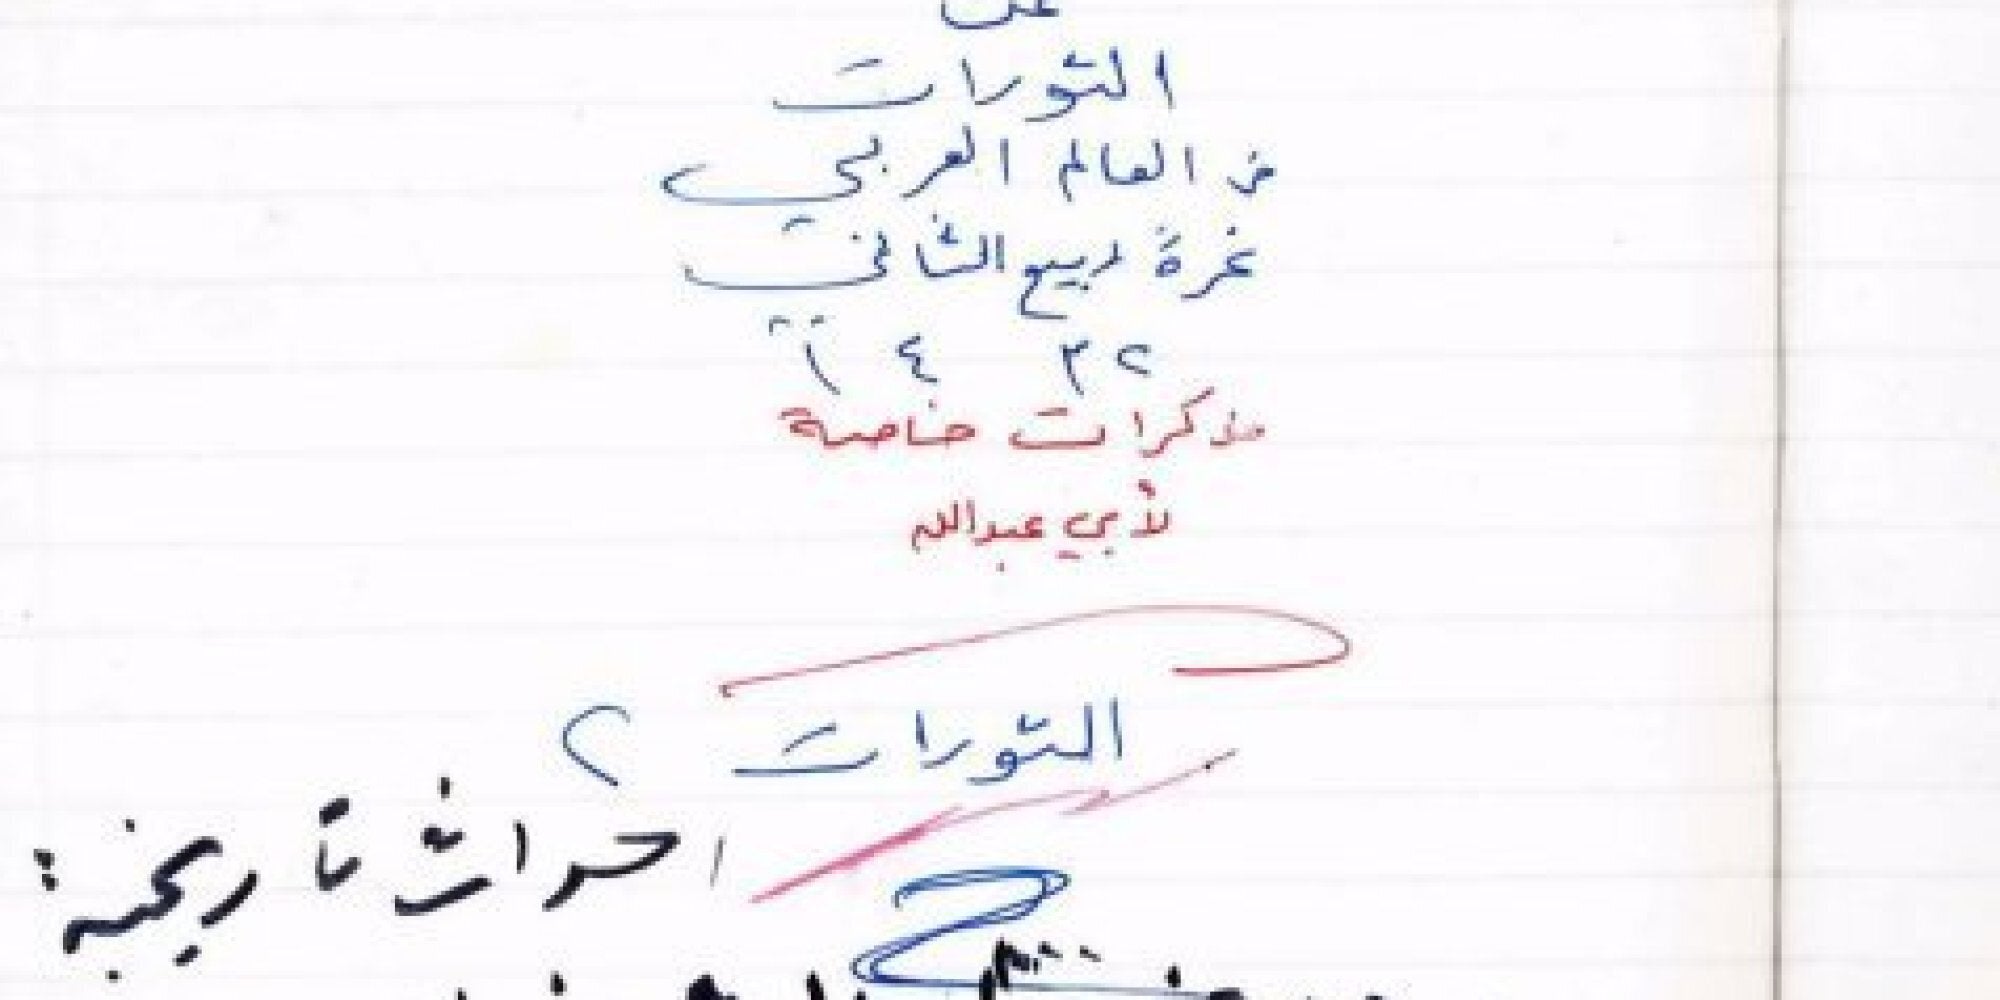 عن
الثورات
في العالم العربي
غرة ربيع الثاني
١٤٣٢
مذكرات خاصة
لأبي عبدالله
الثورات ٢
احداث تاريخية